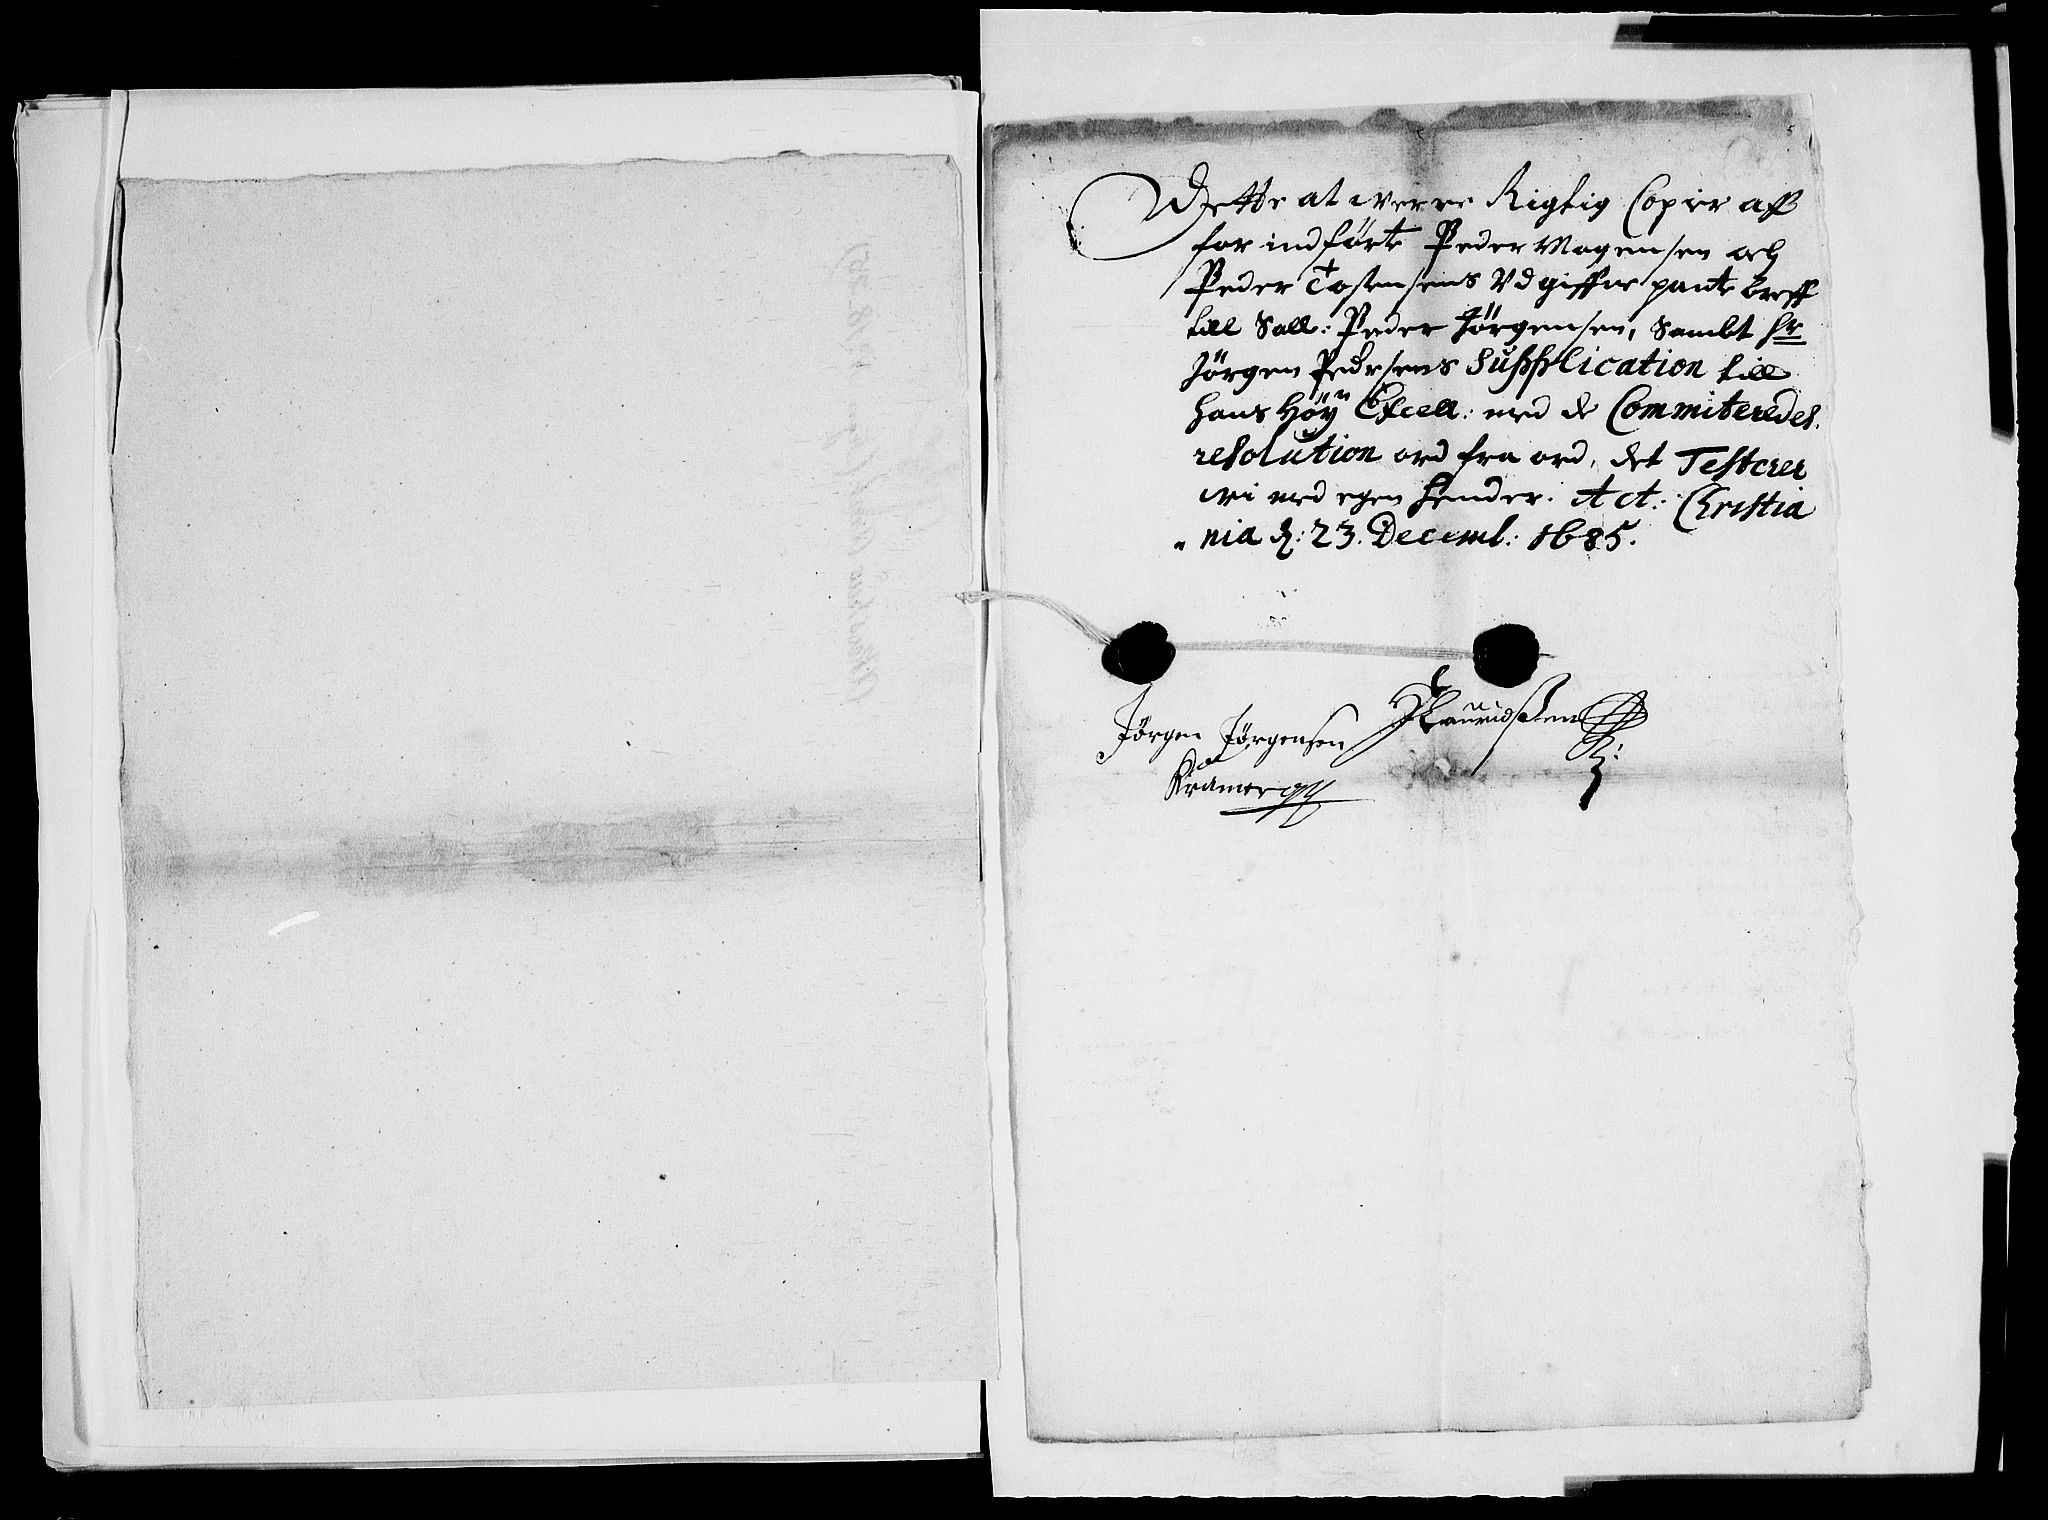 Dette at werre Rigtig Copier aff
for indførte Peder Mogensen och
Peder Tostensens Udgiffne pante breff
till Sall: Peder Jörgensen, Sambt Hr
Jörgen Pedersens Supplication till
Hans Höÿ Excell: med de Commiteredes
resolution ord fra ord, det Testerer
wi med egen Hender. Act: Christia
nia d: 23. Decembr: 1685.
Jörgen Jörgensen
Lauridssen
Kramer